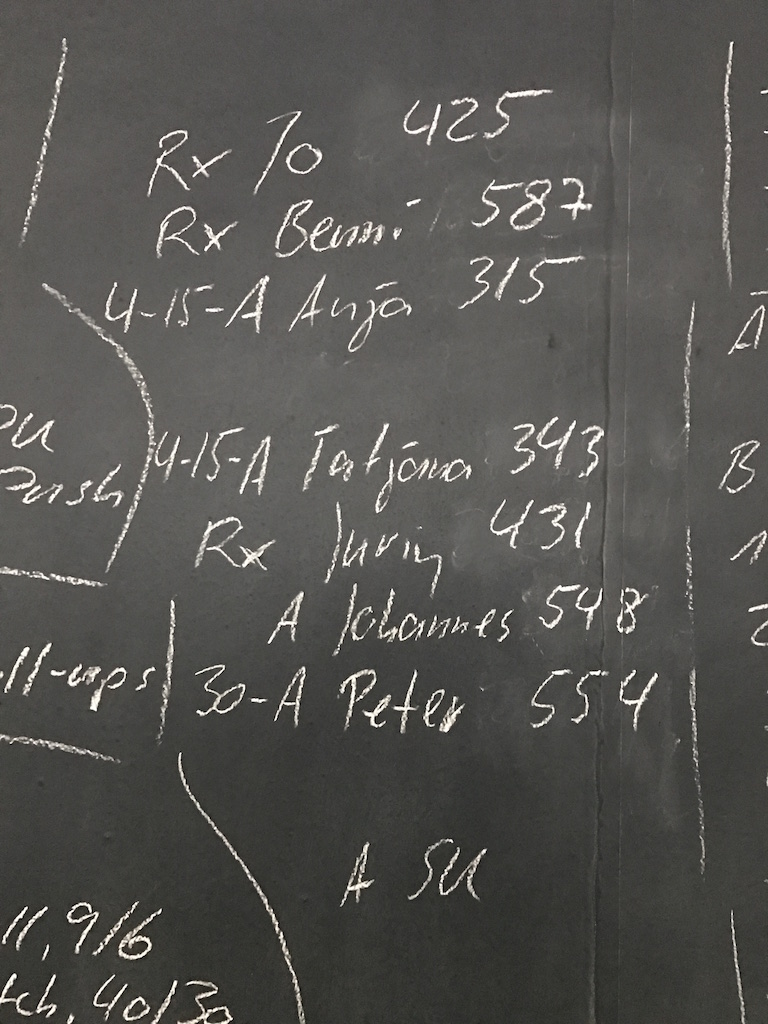 Rx Jo 425
Rx Benni 587
4-15-A Anja 315
A
4-15-A Tatjana 343
B
Push
Rx 431
A Johannes 548
ll-ups
30-A Peter 554
A SU
11, 9/6
tch, 40/30